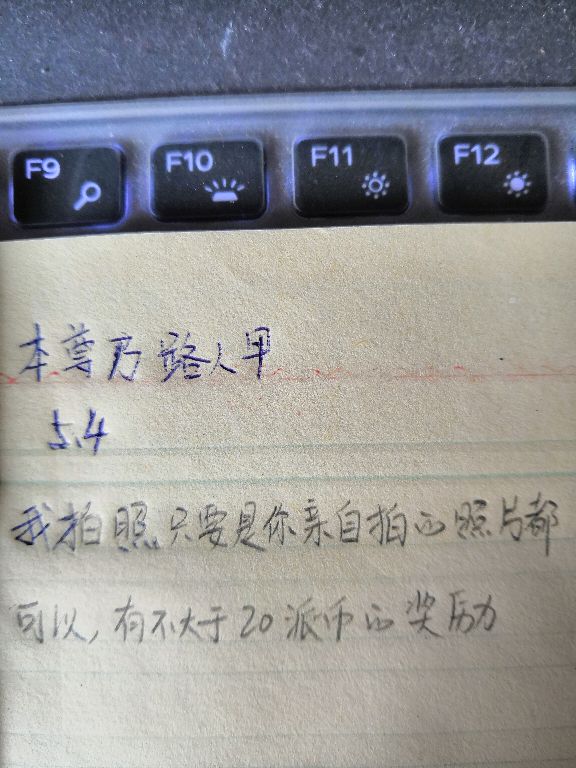 F9 F10 F11 F12
本尊乃路人甲
5.4
我拍照只要是你亲自拍的照片都
可以,有不大于20派币的奖历